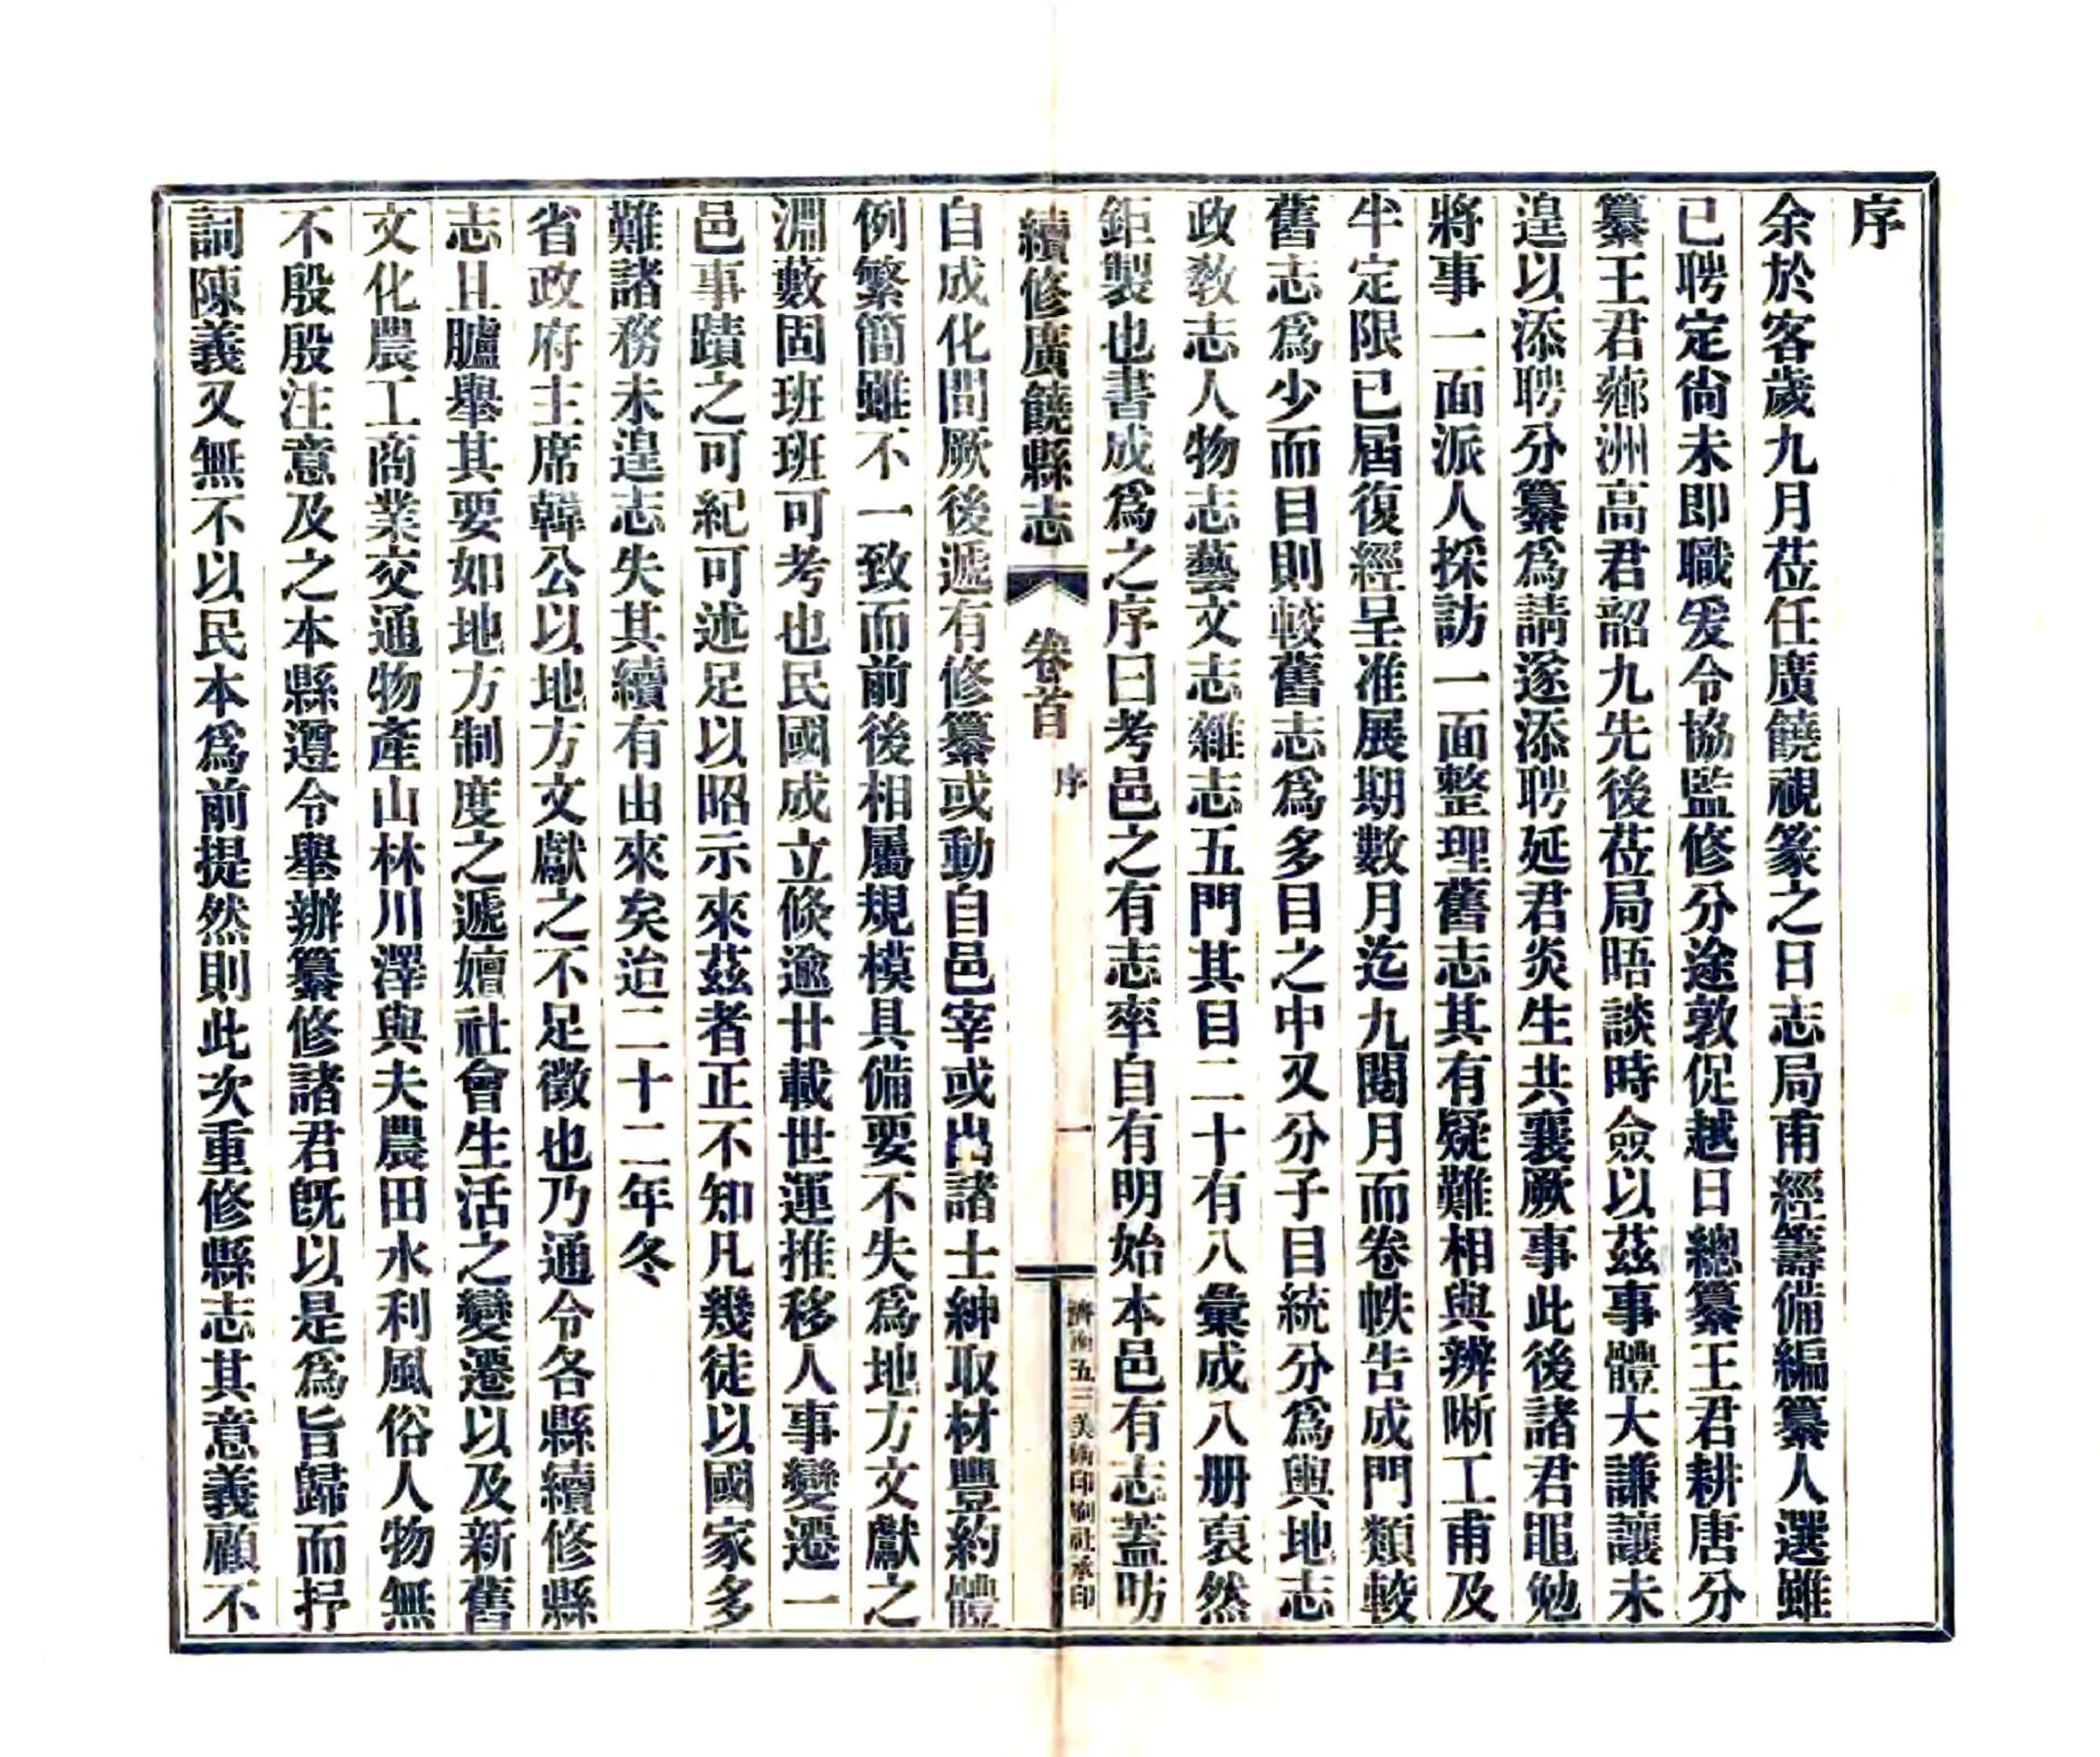 序
余於客歲九月莅任廣饒視篆之日志局甫經籌備編纂人選雖
已聘定尙未即職爰令協監修分途敦促越日總纂王君耕唐分
纂王君薌洲高君韶九先後莅局晤談時僉以茲事體大謙讓未
遑以添聘分纂爲請遂添聘延君炎生共襄厥事此後諸君黽勉
將事一面派人採訪一面整理舊志其有疑難相與辨晰工甫及
半定限已屆復經呈准展期數月迄九閱月而卷帙告成門類較
舊志爲少而目則較舊志爲多目之中又分子目統分爲輿地志
政敎志人物志藝文志雜志五門其目二十有八彙成八册裒然
鉅製也書成爲之序曰考邑之有志率自有明始本邑有志蓋昉
續修廣饒縣志 卷首 序 一 濟南五三美術印刷社承印
自成化間厥後遞有修纂或動自邑宰或出諸士紳取材豐約體
例繁簡雖不一致而前後相屬規模具備要不失爲地方文獻之
淵藪固班班可考也民國成立倏逾廿載世運推移人事變遷一
邑事蹟之可紀可述足以昭示來茲者正不知凡幾徒以國家多
難諸務未遑志失其續有由來矣迨二十二年冬
省政府主席韓公以地方文獻之不足徵也乃通令各縣續修縣
志且臚舉其要如地方制度之遞嬗社會生活之變遷以及新舊
文化農工商業交通物產山林川澤與夫農田水利風俗人物無
不殷殷注意及之本縣遵令舉辦纂修諸君旣以是爲旨歸而抒
詞陳義又無不以民本爲前提然則此次重修縣志其意義顧不